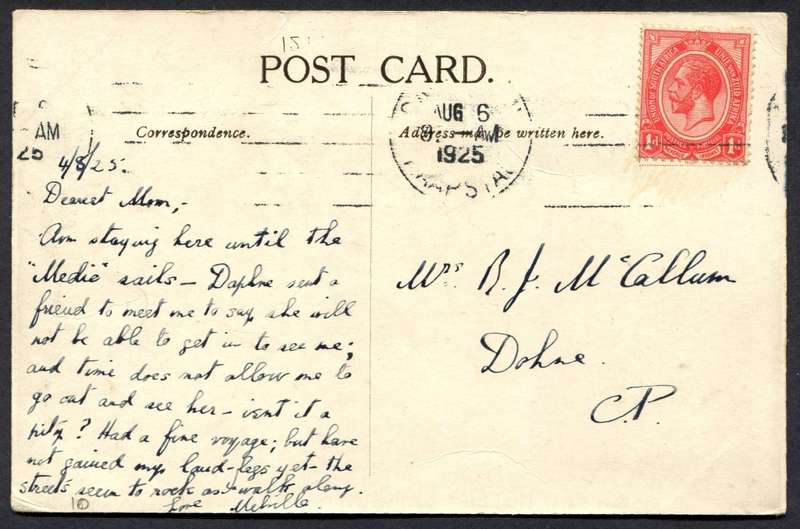 151
POST CARD.
UNION OF SOUTH AFRICA
UNIE VAN ZUID AFRIKA
1D
1D
AM
25
AUG 6
AM
1925
KAAPSTAD
Correspondence.
Address may be written here.
4/8/25.
Dearest Mom,-
Am staying here until the
"Medic" sails - Daphne sent a
friend to meet me to say she will
not be able to get in to see me;
and time does not allow me to
go out and see her - isnt it a
pity? Had a fine voyage; but have
not gained my land-legs yet - the
streets seem to rock as I walk along.
Love Melville.
10
Mrs R. J. McCallum
Dohne.
C.P.